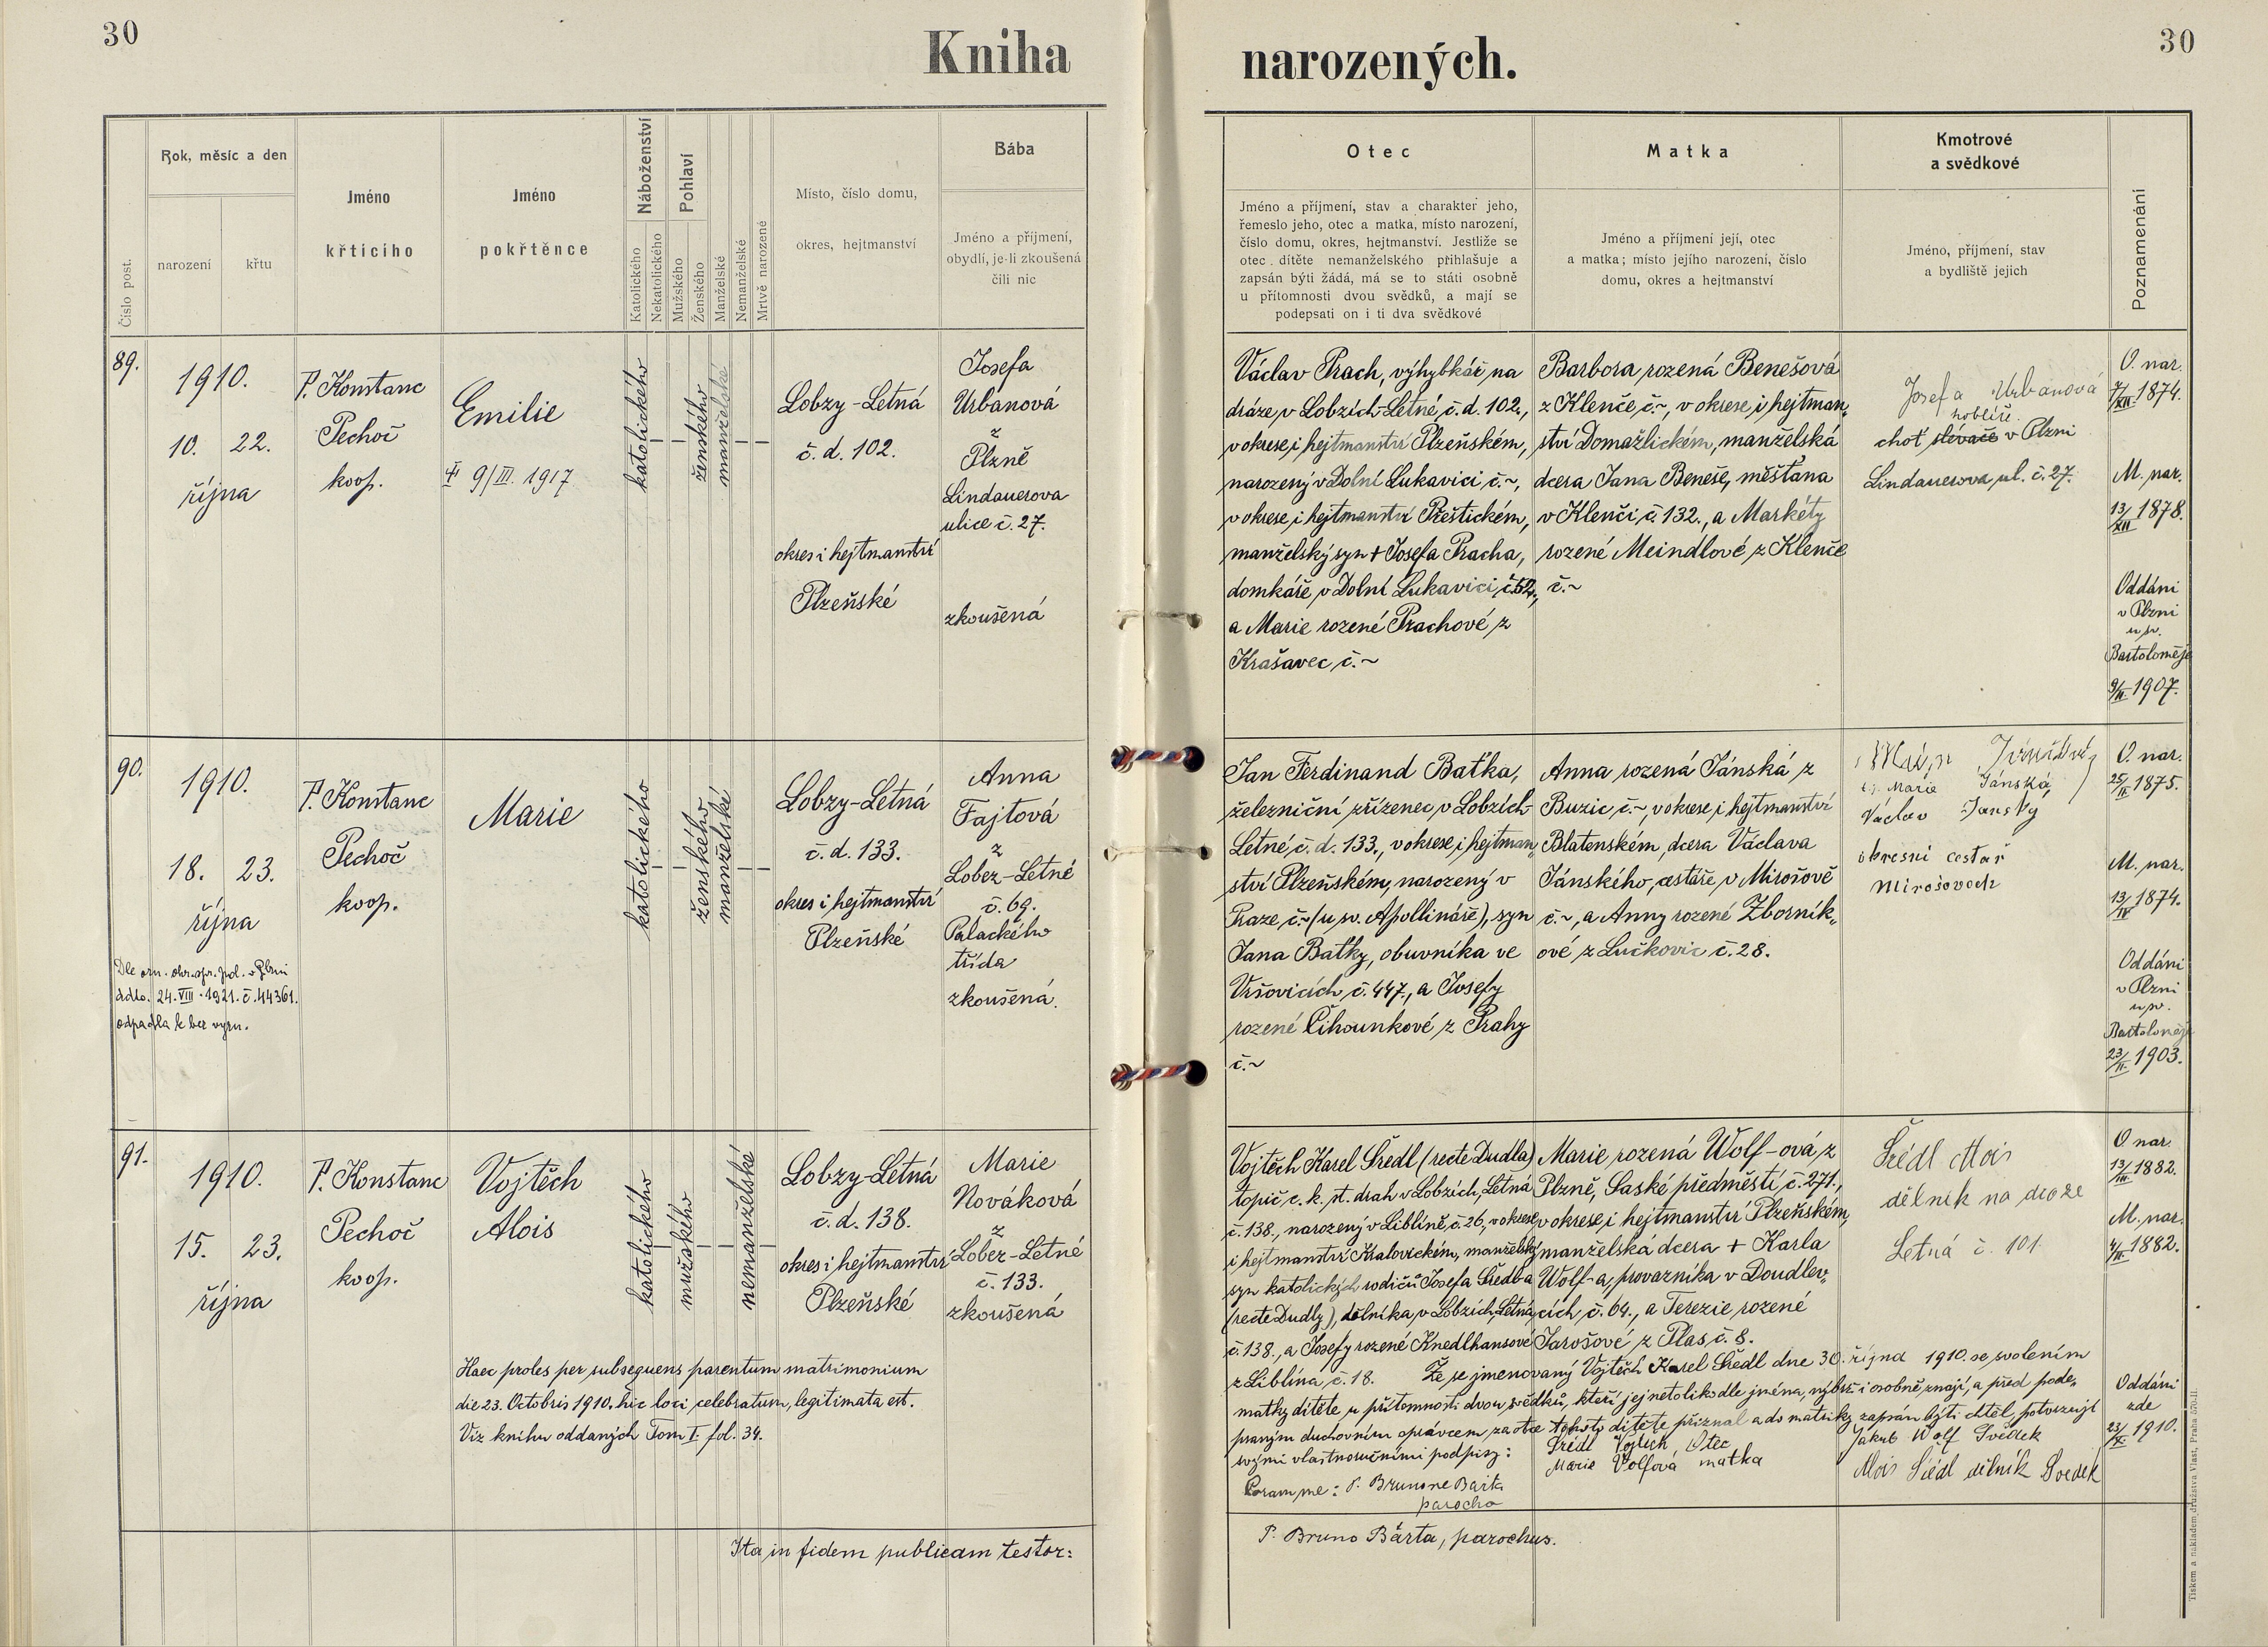 30
Kniha narozených.
30
Číslo post.
Rok, měsíc a den
narození
křtu
Jméno
křtícího
Jméno
pokřtěnce
Náboženství
Katolického
Nekatolického
Pohlaví
Mužského
Ženského
Manželské
Nemanželské
Mrtvě narozené
Místo, číslo domu,
okres, hejtmanství
Bába
Jméno a příjmení,
obydlí, je-li zkoušená
čili nic
Otec
Jméno a příjmení, stav a charakter jeho,
řemeslo jeho, otec a matka, místo narození,
číslo domu, okres, hejtmanství. Jestliže se
otec dítěte nemanželského přihlašuje a
zapsán býti žádá, má se to státi osobně
u přítomnosti dvou svědků, a mají se
podepsati on i ti dva svědkové
Matka
Jméno a příjmení její, otec
a matka; místo jejího narození, číslo
domu, okres a hejtmanství
Kmotrové
a svědkové
Jméno, příjmení, stav
a bydliště jejich
Poznamenání
89.
1910.
10. 22.
října
P. Konstanc
Pechoč
koop.
Emilie
9/III. 1917
katolického
ženského
manželské
Lobzy-Letná
č. d. 102.
okres i hejtmanství
Plzeňské
Josefa
Urbanová
z
Plzně
Lindauerova
ulice č. 27.
zkoušená
Václav Prach, výhybkář na
dráze v Lobzích-Letné, č. d. 102.,
v okrese i hejtmanství Plzeňském,
narozený v Dolní Lukavici č. ~,
v okrese i hejtmanství Přeštickém,
manželský syn + Josefa Pracha,
domkáře v Dolní Lukavici, č. 52.,
a Marie rozené Prachové z
Krašavec č. ~
Barbora rozená Benešová
z Klenče, č. ~, v okrese i hejtman„
ství Domažlickém, manželská
dcera Jana Beneše, měšťana
v Klenči č. 132., a Markéty
rozené Meindlové z Klenče
č. ~
Josefa Urbanová
hoblíře
choť slévače v Plzni
Lindauerova ul. č. 27.
O. nar.
7/XII. 1874.
M. nar.
13/XII 1878.
Oddáni
v Plzni
u sv.
Bartoloměje
9/II. 1907.
90.
1910.
18. 23.
října
Dle ozn. okr. spr. pol. v Plzni
ddto. 24. VIII. 1921. č. 44361.
odpadla k bez vyzn.
P. Konstanc
Pechoč
koop.
Marie
katolického
ženského
manželské
Lobzy-Letná
č. d. 133.
okres i hejtmanství
Plzeňské
Anna
Fajtová
z
Lobez-Letné
č. 69.
Palackého
třída
zkoušená.
Jan Ferdinand Baťka,
železniční zřízenec v Lobzích-
Letné, č. d. 133., v okrese i hejtman„
ství Plzeňském, narozený v
Praze, č. ~ (u sv. Apollináře), syn
Jana Baťky, obuvníka ve
Vršovicích č. 447., a Josefy
rozené Čihounkové z Prahy
č. ~
Anna rozená Jánská z
Buzic č. ~, v okrese i hejtmanství
Blatenském, dcera Václava
Jánského, cestáře v Mirošově
č. ~, a Anny rozené Zborník„
ové z Lučkovic č. 28.
Marie Jánská,
Václav Janský
okresní cestář
Mirošovech
O. nar.
25/II. 1875.
M. nar.
13/IV 1874.
Oddáni
v Plzni
u sv.
Bartoloměje
23/II. 1903.
91.
1910.
15. 23.
října
P. Konstanc
Pechoč
koop.
Vojtěch
Alois
katolického
mužského
nemanželské
Lobzy-Letná
č. d. 138.
okres i hejtmanství
Plzeňské
Marie
Nováková
z
Lobez-Letné
č. 133.
zkoušená
Haec proles per subsequens parentum matrimonium
die 23. Octobris 1910. hic loci celebratum, legitimata est.
Viz knihu oddaných Tom I. fol. 34.
Vojtěch Karel Šředl (recte Dudla)
topič c. k. st. drah v Lobzích, Letná
č. 138., narozený v Liblíně, č. 26, v okrese
i hejtmanství Kralovickém, manželský
syn katolických rodičů Josefa Šředla
(recte Dudly), dělníka, v Lobzích, Letná
č. 138., a Josefy rozené Knedlhansové
z Liblína č. 18.
Marie rozená Wolf-ová z
Plzně, Saské předměstí č. 271.,
v okrese i hejtmanství Plzeňském,
manželská dcera + Karla
Wolf-a, provazníka v Doudlev„
cích č. 64., a Terezie rozené
Jarošové z Plas, č. 8.
Že se jmenovaný Vojtěch Karel Šředl dne 30. října 1910. se svolením
matky dítěte, u přítomnosti dvou svědků, kteří jej netoliko dle jména, nýbrž i osobně znají, a před pode„
psaným duchovním správcem za otce tohoto dítěte přiznal a do matriky zapsán býti chtěl, potvrzují
svými vlastnoručními podpisy:
Šředl Vojtěch, Otec
Marie Volfová matka
Jakub Wolf Svědek
Alois Šředl dělník Svedek
Coram me: P. Brunone Bárta
parocho
Šrédl Alois
dělník na draze
Letná č. 101.
O. nar.
13/III. 1882.
M. nar.
4/IV. 1882.
Oddáni
zde
23/X. 1910.
Ita in fidem publicam testor:
P. Bruno Bárta, parochus.